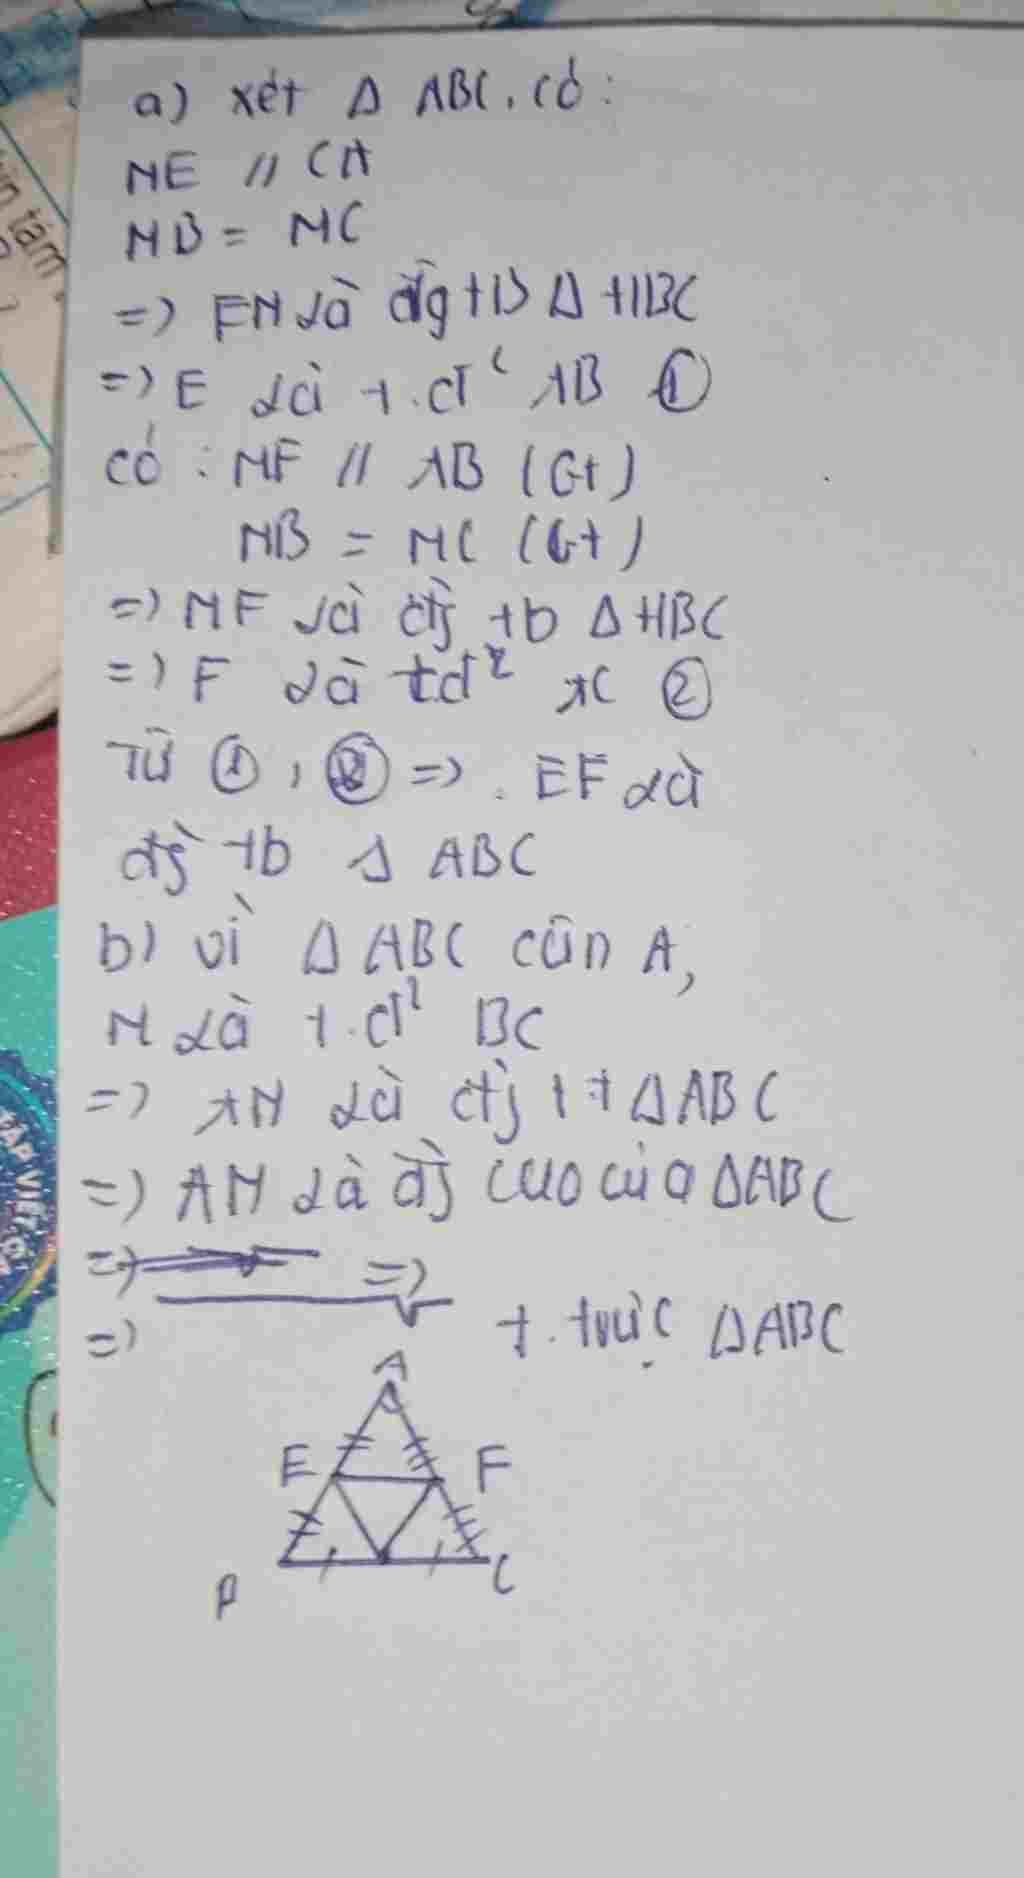 a) xét Δ ABC, có:
ME // CA
MB = MC
=> EM là đg tb Δ ABC
=> E là t.đ² AB ①
có : MF // AB (Gt)
MB = MC (Gt)
=> MF là đg tb Δ ABC
=> F là tđ² AC ②
Từ ①, ② => EF là
đg tb Δ ABC
b) vì Δ ABC cân A,
M là t.đ² BC
=> AM là đg tt Δ ABC
=> AM là đg cao của Δ ABC
=> =>
=> t. trực Δ ABC
A
E F
B C
tâm
TẬP VIẾT